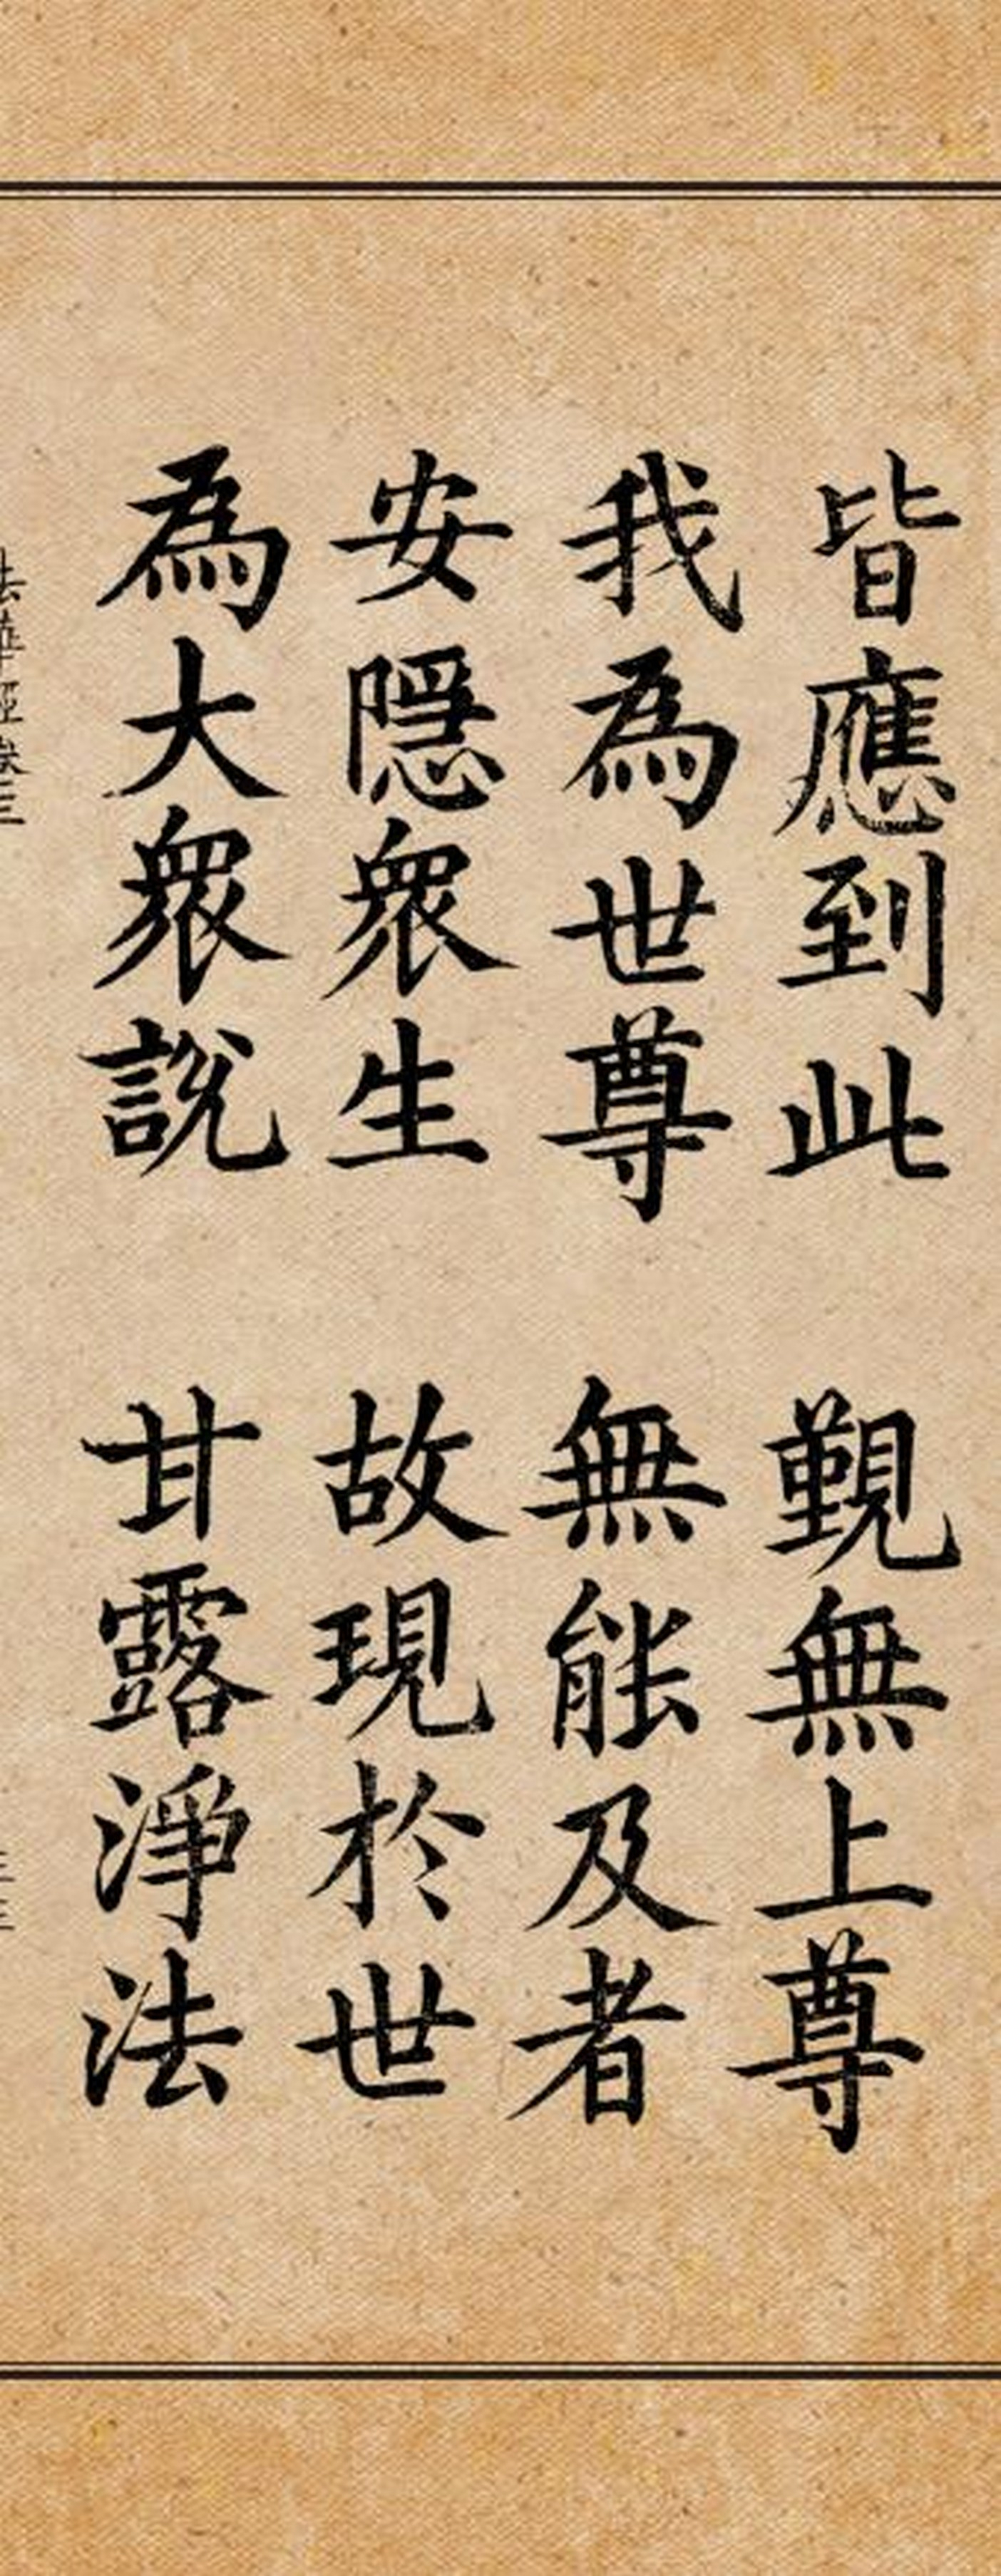 皆應到此 覲無上尊
我為世尊 無能及者
安隱衆生 故現於世
為大衆說 甘露淨法
法華經卷三